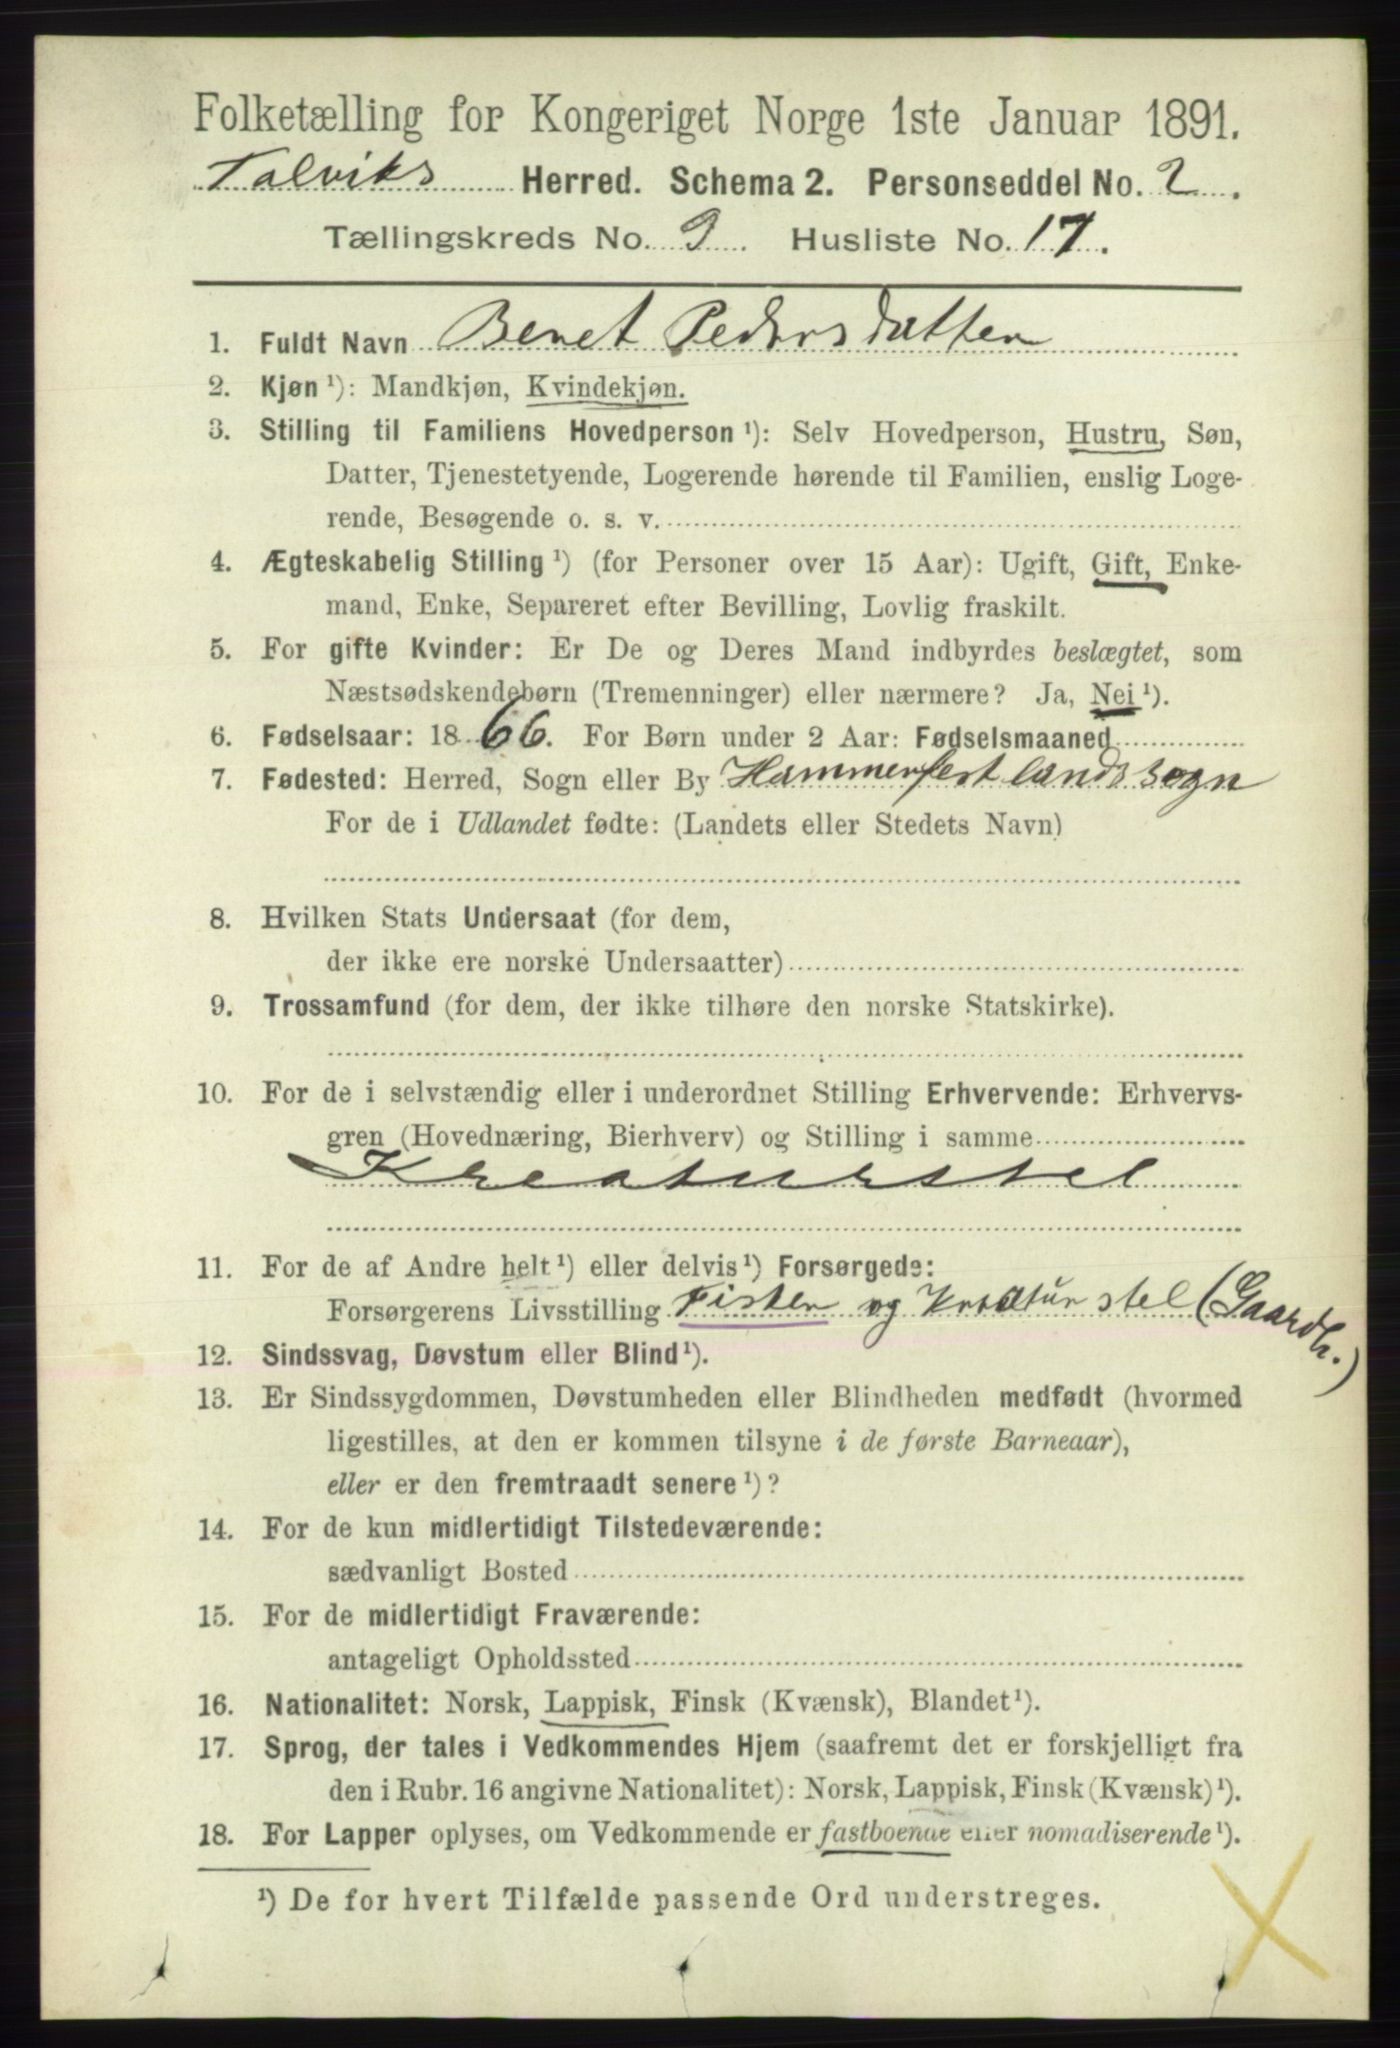 Folketælling for Kongeriget Norge 1ste Januar 1891.
Talviks Herred. Schema 2. Personseddel No. 2.
Tællingskreds No. 9. Husliste No. 17.
1. Fuldt Navn Beret Pedersdatter
2. Kjøn ¹): Mandkjøn, Kvindekjøn.
3. Stilling til Familiens Hovedperson ¹): Selv Hovedperson, Hustru, Søn,
Datter, Tjenestetyende, Logerende hørende til Familien, enslig Loge-
rende, Besøgende o. s. v.
4. Ægteskabelig Stilling ¹) (for Personer over 15 Aar): Ugift, Gift, Enke-
mand, Enke, Separeret efter Bevilling, Lovlig fraskilt.
5. For gifte Kvinder: Er De og Deres Mand indbyrdes beslægtet, som
Næstsødskendebørn (Tremenninger) eller nærmere? Ja, Nei ¹).
6. Fødselsaar: 1866. For Børn under 2 Aar: Fødselsmaaned
7. Fødested: Herred, Sogn eller By Hammerfest landssogn
For de i Udlandet fødte: (Landets eller Stedets Navn)
8. Hvilken Stats Undersaat (for dem,
der ikke ere norske Undersaatter)
9. Trossamfund (for dem, der ikke tilhøre den norske Statskirke).
10. For de i selvstændig eller i underordnet Stilling Erhvervende: Erhvervs-
gren (Hovednæring, Bierhverv) og Stilling i samme
Kreaturstel
11. For de af Andre helt ¹) eller delvis ¹) Forsørgede:
Forsørgerens Livsstilling Fisker og Kreaturstel (Gaardb.)
12. Sindssvag, Døvstum eller Blind ¹).
13. Er Sindssygdommen, Døvstumheden eller Blindheden medfødt (hvormed
ligestilles, at den er kommen tilsyne i de første Barneaar),
eller er den fremtraadt senere ¹)?
14. For de kun midlertidigt Tilstedeværende:
sædvanligt Bosted
15. For de midlertidigt Fraværende:
antageligt Opholdssted
16. Nationalitet: Norsk, Lappisk, Finsk (Kvænsk), Blandet ¹).
17. Sprog, der tales i Vedkommendes Hjem (saafremt det er forskjelligt fra
den i Rubr. 16 angivne Nationalitet): Norsk, Lappisk, Finsk (Kvænsk) ¹).
18. For Lapper oplyses, om Vedkommende er fastboende eller nomadiserende ¹).
¹) De for hvert Tilfælde passende Ord understreges.